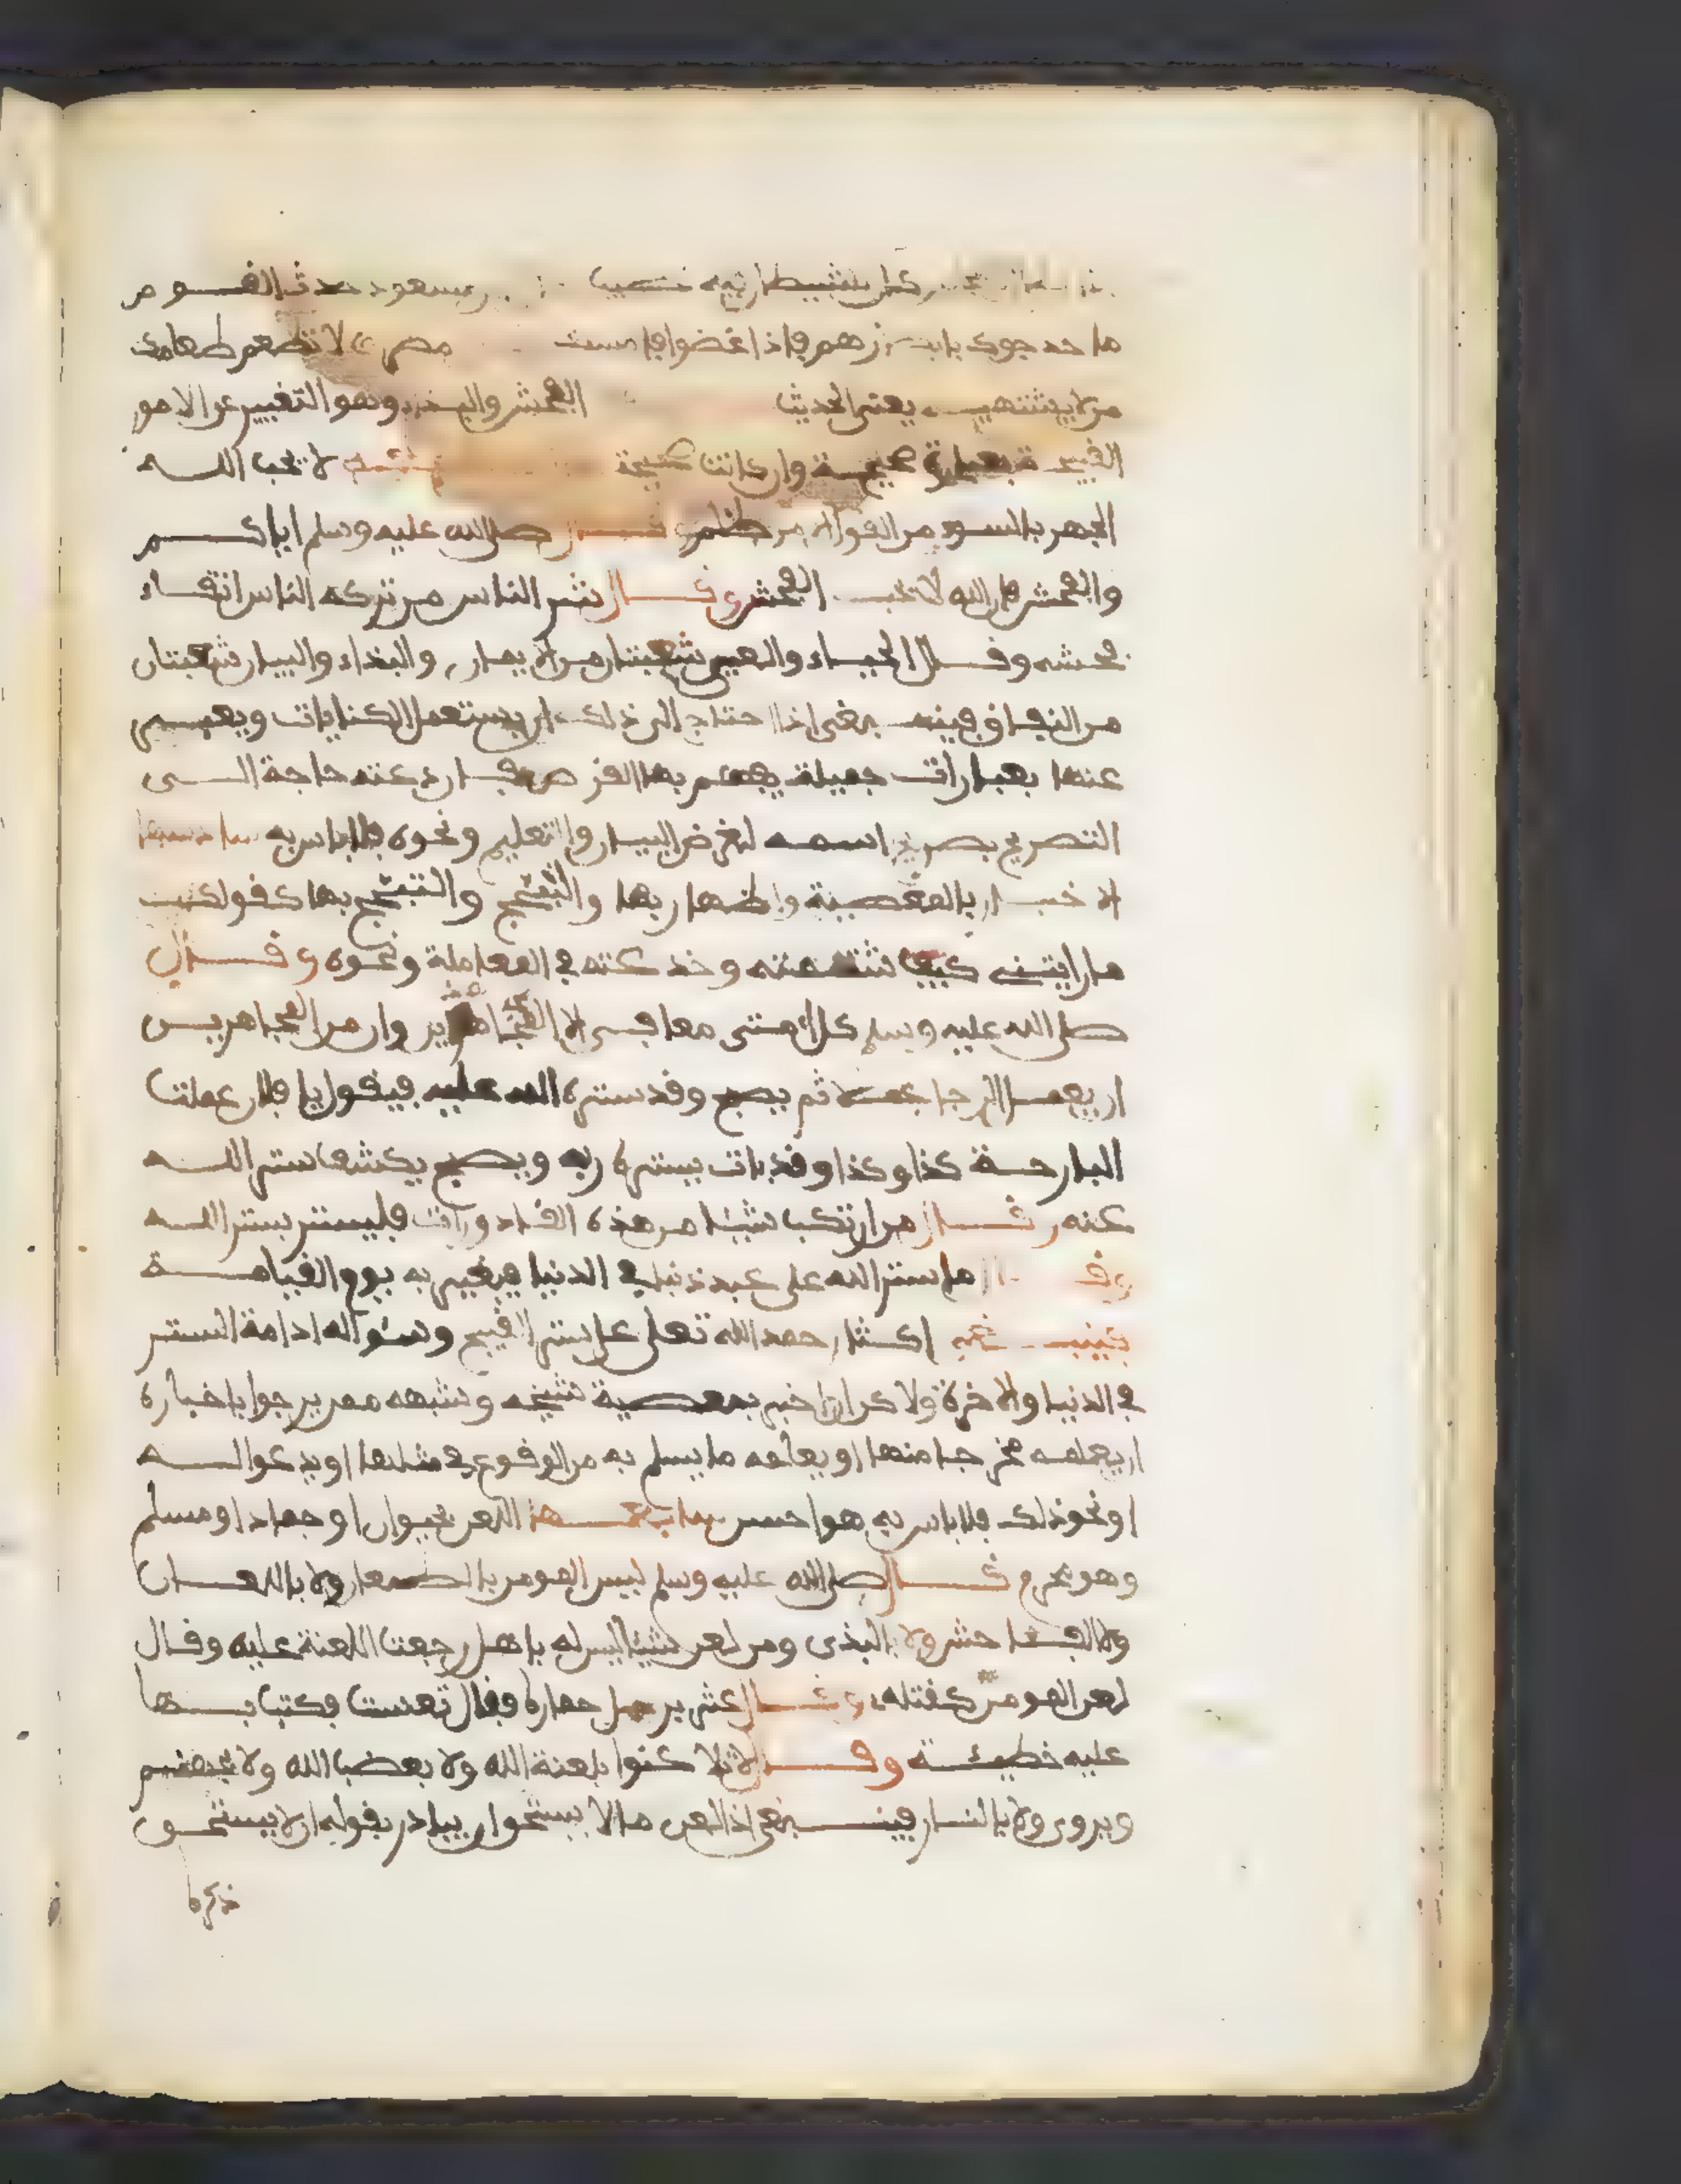 كل شيطان فيه نصيب مسعود حدث القوم
ما حدجوك بابصارهم فاذا غضوا فامسك لا تطعم طعامك
من لا يشتهيه يعني الحديث الفحش والبذاء وهو التعبير عن الامور
القبيحة بعبارة صريحة وان كانت صحيحة لا يحب الله
الجهر بالسوء من القول الا من ظلم وقال صلى الله عليه وسلم اياكم
والفحش فان الله لا يحب الفحش وقال شر الناس من تركه الناس اتقاء
فحشه وقال الحياء والعي شعبتان من الايمان والبذاء والبيان شعبتان
من النفاق فينبغي اذا احتاج الى ذلك ان يستعمل الكنايات ويعبر
عنها بعبارات جميلة يفهم بها الغرض فان دعته حاجة الى
التصريح بصريح اسمه لغرض البيان والتعليم ونحوه فلا باس به
الاخبار بالمعصية واظهار بها والتبجح بها كقولك
ما رايتني كيف شتمته وخدعته في المعاملة ونحوه وقال
صلى الله عليه وسلم كل امتي معافى الا المجاهرين وان من المجاهرين
ان يعمل الرجل عملا ثم يصبح وقد ستره الله عليه فيقول يا فلان عملت
البارحة كذا وكذا وقد بات يستره ربه ويصبح يكشف ستر الله
عنه وقال من ارتكب شيئا من هذه القاذورات فليستتر بستر الله
وقال ما ستر الله على عبد ذنبا في الدنيا فيعيره به يوم القيامة
فينبغي اكثار حمد الله تعلى على ستر القبيح وسؤاله ادامة الستر
في الدنيا والاخرة ولاكن ان اخبر بمعصية شيخه وشبهه ممن يرجوا باخباره
ان يعلمه مخرجا منها او يعلمه ما يسلم به من الوقوع في مثلها او يدعوا له
او نحو ذلك فلا باس به هو احسن اللعن لحيوان او جماد او مسلم
وهو محرم قال صلى الله عليه وسلم ليس المومن بالطعان ولا باللعان
ولا الفاحش ولا البذي ومن لعن شيئا ليس له باهل رجعت اللعنة عليه وقال
لعن المومن كقتله وقال عثر برجل حماره فقال تعست فكتب بها
عليه خطيئة وقال لا تلاعنوا بلعنة الله ولا بغضب الله ولا بجهنم
ويروى ولا بالنار فينبغي اذا لعن ما لا يستحق ان يبادر بقوله الا ان لا يستحق
ذكره